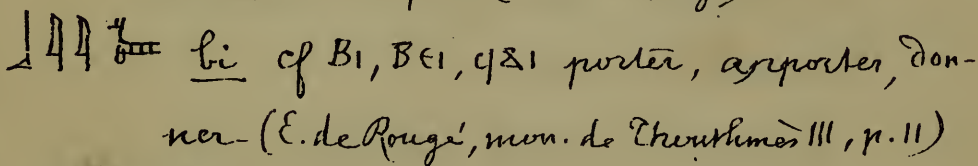 𓃀𓇋𓇋 bi cf ⲃⲓ, ⲃⲉⲓ, ϥⲁⲓ porter, apporter, don-
ner (E. de Rougé, mon. de Thouthmès III, p. 11)